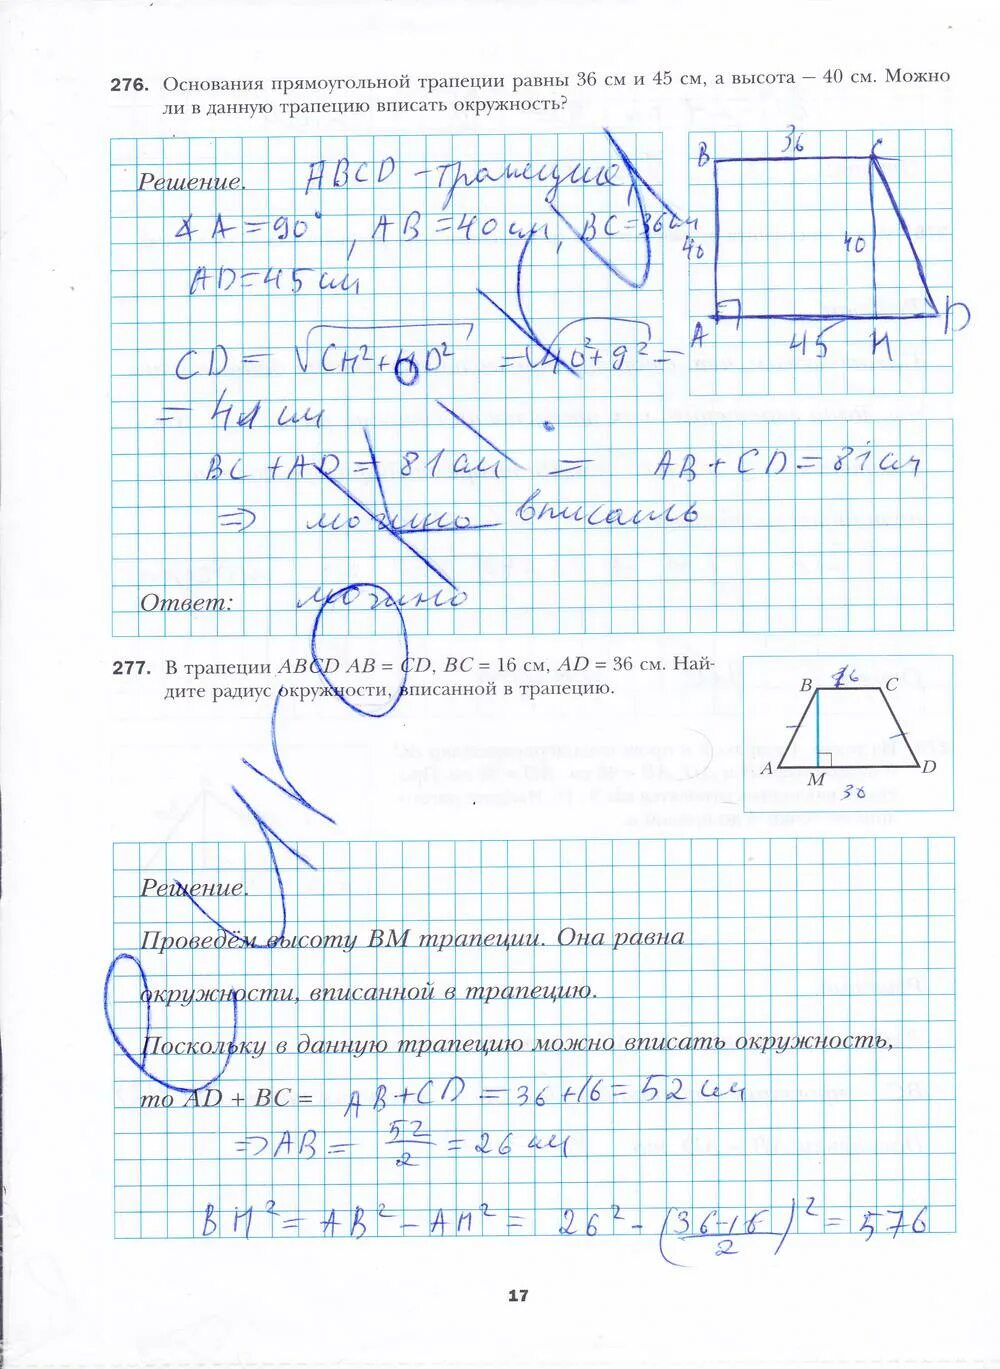 276. Основания прямоугольной трапеции равны 36 см и 45 см, а высота – 40 см. Можно
ли в данную трапецию вписать окружность?
Решение. ABCD – трапеция,
∢ A = 90°, AB = 40 см, BC = 36 см
AD = 45 см
CD = √CH² + HD² = √40² + 9² =
= 41 см
BC + AD = 81 см = AB + CD = 81 см
⇒ можно вписать
Ответ: можно
B 36 C
40 40
A 45 H D
277. В трапеции ABCD AB = CD, BC = 16 см, AD = 36 см. Най-
дите радиус окружности, вписанной в трапецию.
B 16 C
A M D
36
Решение.
Проведём высоту BM трапеции. Она равна
окружности, вписанной в трапецию.
Поскольку в данную трапецию можно вписать окружность,
то AD + BC = AB + CD = 36 + 16 = 52 см
⇒ AB = 52/2 = 26 см
BM² = AB² – AM² = 26² – (36–16/2)² = 576
17